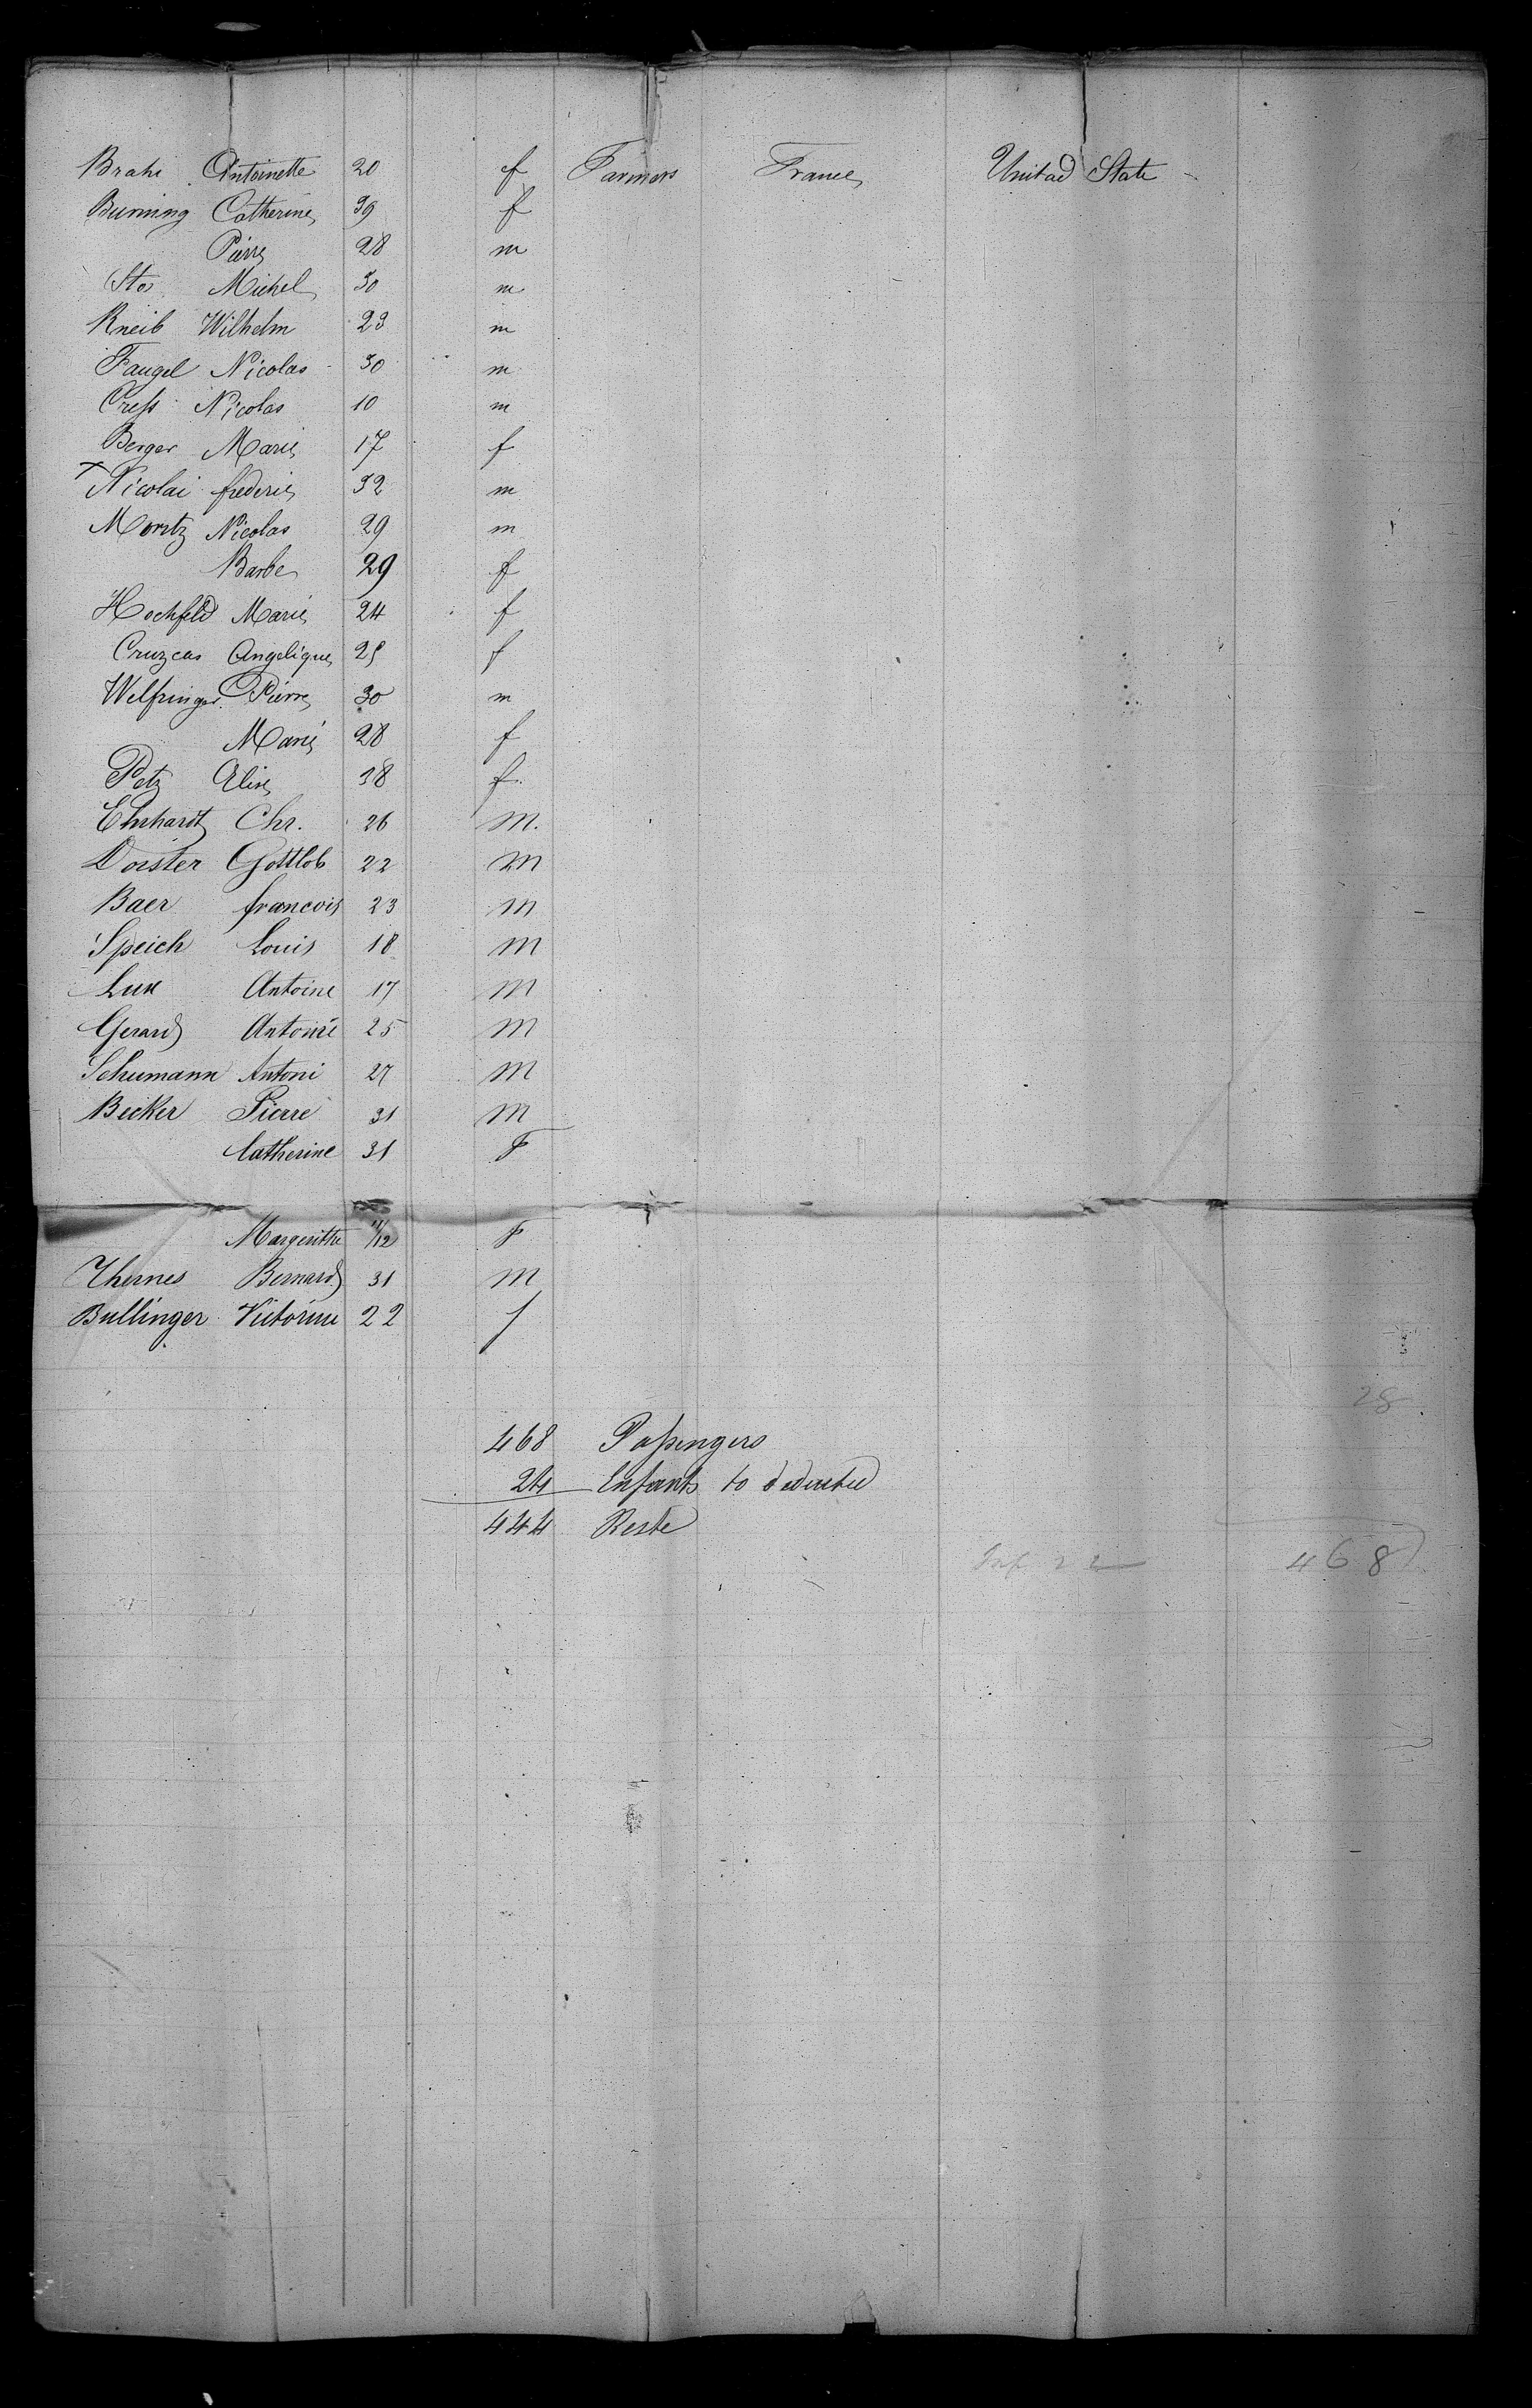 Brahi Antoinette 20 f Farmers France United State
Burning Catherine 39 f
Pierre 28 m
Sto Michel 30 m
Kneib Wilhelm 23 m
Faugel Nicolas 30 m
Cress Nicolas 10 m
Berger Marie 17 f
x Nicolai frederic 32 m
Moritz Nicolas 29 m
Barbe 29 f
Hochfeld Marie 24 f
Cruzcas Angelique 25 f
Welfringer Pierre 30 m
Marie 28 f
Petz Elise 38 f
Ehrhardt Chr. 26 M.
Doister Gottlob 22 M
Baer francois 23 M
Speich Louis 18 M
Lux Antoine 17 M
Gerard Antoine 25 M
Schumann Antoni 27 M
Becker Pierre 31 M
Catherine 31 F
Margerithe 11/12 F
Thernes Bernard 31 M
Bullinger Victorine 22 f
28
468 Passengers
24 Enfants to deducted
444 Reste
Inf 22 468